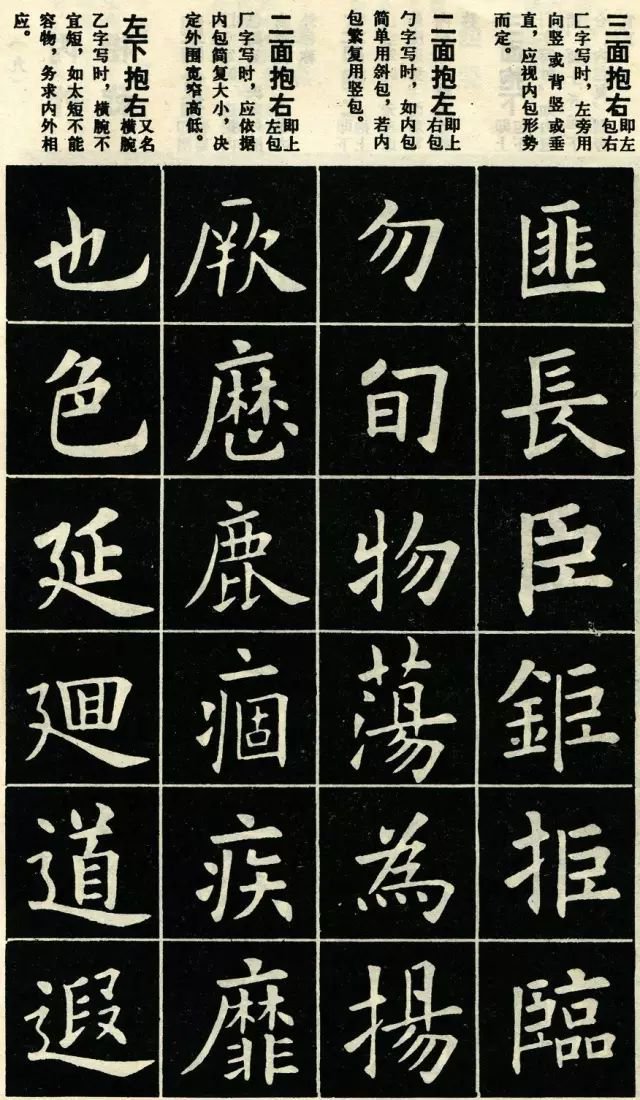 三面抱右 即左包右
匚字写时，左旁用
向竖或背竖或垂
直，应视内包形势
而定。
二面抱左 即上右包
勹字写时，如内包
简单用斜包，若内
包繁复用竖包。
二面抱右 即上左包
厂字写时，应依据
内包简复大小，决
定外围宽窄高低。
左下抱右 又名横腕
乙字写时，横腕不
宜短，如太短不能
容物，务求内外相
应。
匪長臣鉅拒臨
勿旬物蕩為揚
厥鹿痼疾靡
也色延廻道遐